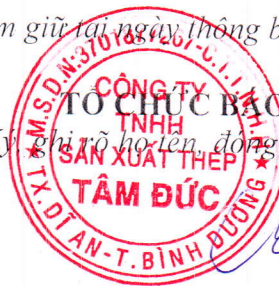 giữ tại ngày thông b
TỔ CHỨC BÁO
ghi rõ họ tên, đóng
M.S.D.N:3701 267-C.T.T.N.H.H
CÔNG TY
TNHH
SẢN XUẤT THÉP
TÂM ĐỨC
TX. DĨ AN-T. BÌNH DƯƠNG